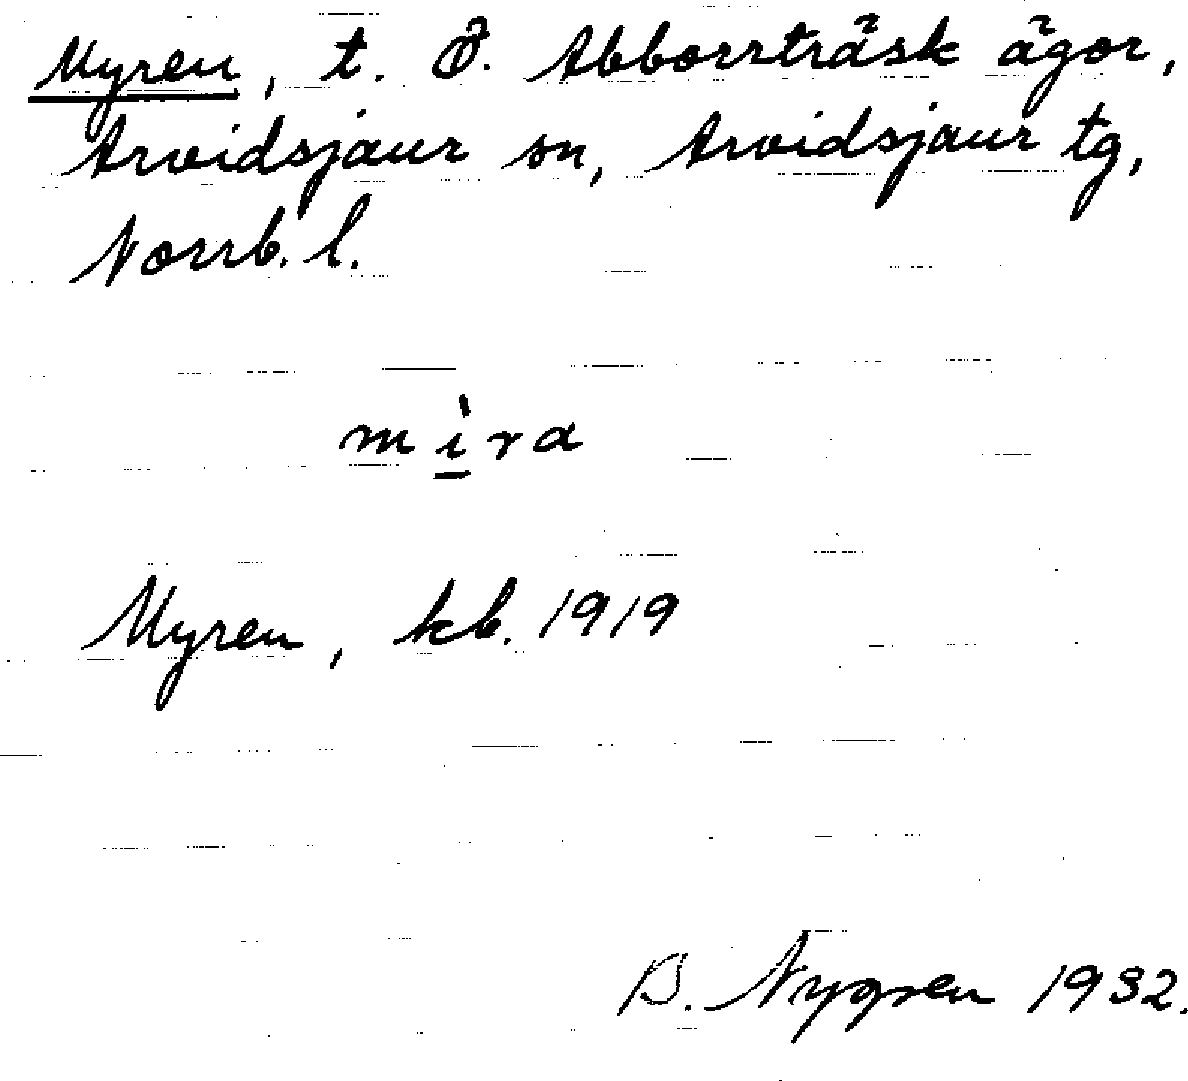 Myren, t. Ö. Abborrträsk ägor,
Arvidsjaur sn, Arvidsjaur tg,
Norrb. l.
mìra
Myren, kb. 1919
B. Nygren 1932.